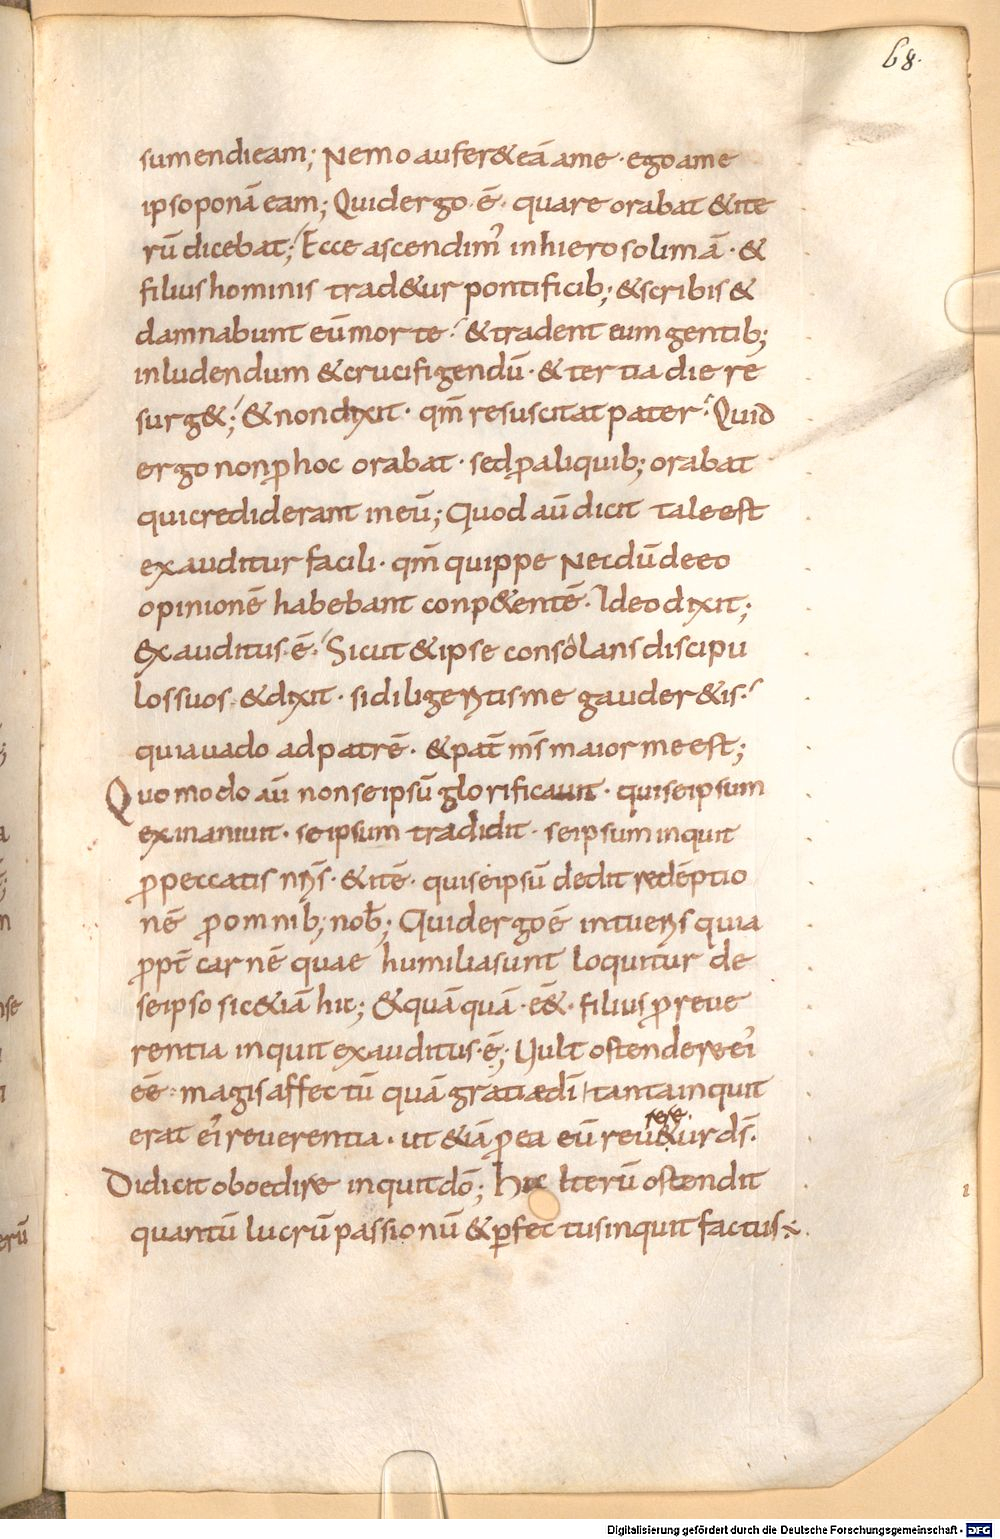 68.
sumendieam; Nemo aufer&eā ame · ego ame
ipso ponā eam; Quid ergo · ē · quare orabat & ite
rū dicebat; Ecce ascendim' in hierosolimā · &
filius hominis trad&ur pontificib; & scribis &
damnabunt eū morte · & tradent eum gentib;
inludendum & crucifigendū · & tertia die re
surg&; & non dixit · qm̄ resuscitat pater · Quid
ergo non p̄ hoc orabat · sed p̄ aliquib; orabat
qui crediderant in eū; Quod aū dicit tale est
exauditur facili · qm̄ quippe Necdū de eo
opinionē habebant conp&entē · Ideo dixit;
Exauditus · ē · Sicut & ipse consolans discipu
los suos · & dixit · si diligeretis me gauder&is ·
quia vado ad patrē · & pat̄ m̄s maior me est;
Quomodo aū non se ipsū glorificavit · qui se ipsum
exinanivit · se ipsum tradidit · se ipsum inquit
p̄ peccatis nr̄is · & itē · qui se ipsū dedit redēptio
nē p̄ omnib; nob̄; Quid ergo ē intueris quia
p̄pt̄ carnē quae humilia sunt loquitur de
se ipso sic &iā hic; & quāquā · e&̄ · filius p̄ reve
rentia inquit exauditus · ē; Vult ostendere ei'
ēē · magis affectū quā gratiā dī · tanta inquit
erat ei' reverentia · ut &iā p̄ ea eū rev&ur d̄s ·
rere
Didicit oboedire inquit dō; Hic Iterū ostendit
quantū lucrū passionū & p̄fectus inquit factus
Digitalisierung gefördert durch die Deutsche Forschungsgemeinschaft - DFG